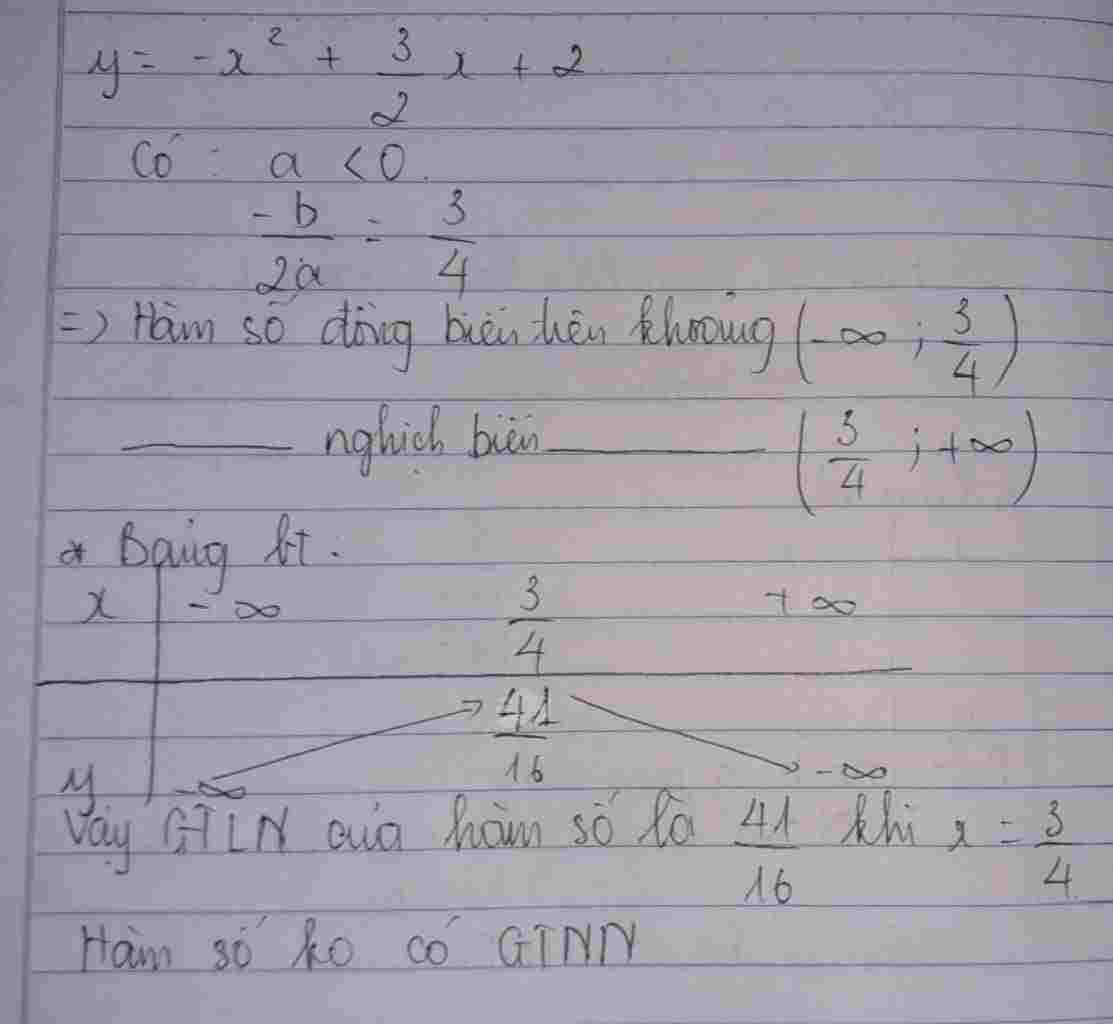 y = -x² + 3/2 x + 2
Có : a < 0.
-b/2a = 3/4
=> Hàm số đồng biến trên khoảng (-∞ ; 3/4)
——— nghịch biến ——— (3/4 ; +∞)
* Bảng bt.
x -∞ 3/4 +∞
y -∞ 41/16 -∞
Vậy GTLN của hàm số là 41/16 khi x = 3/4
Hàm số ko có GTNN